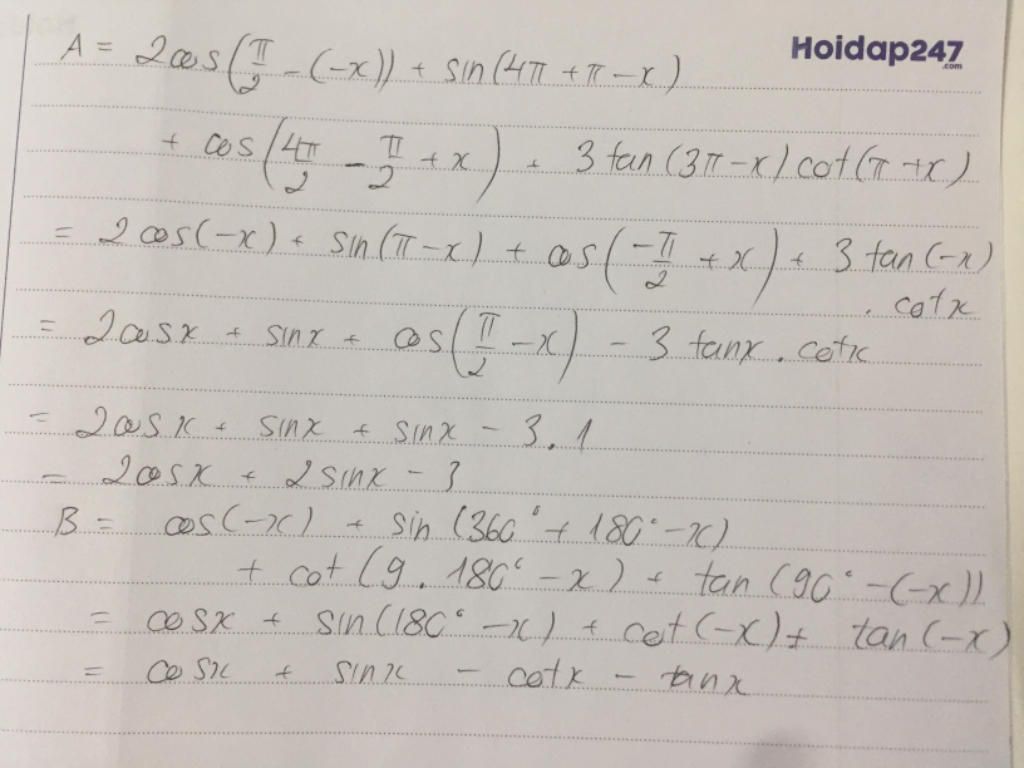 Hoidap247
.com
A = 2cos(π/2 - (-x)) + sin(4π + π - x)
+ cos(4π/2 - π/2 + x) + 3 tan(3π - x) cot(π + x)
= 2cos(-x) + sin(π - x) + cos(-π/2 + x) + 3 tan(-x)
. cotx
= 2cosx + sinx + cos(π/2 - x) - 3 tanx . cotx
= 2cosx + sinx + sinx - 3.1
= 2cosx + 2sinx - 3
B = cos(-x) + sin(360° + 180° - x)
+ cot(9.180° - x) + tan(90° - (-x))
= cosx + sin(180° - x) + cot(-x) + tan(-x)
= cosx + sinx - cotx - tanx